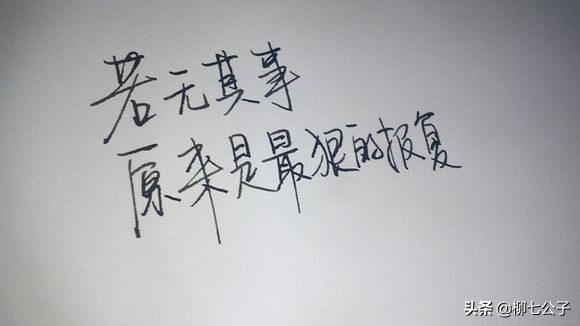 若无其事
原来是最狠的报复
头条 @柳七公子